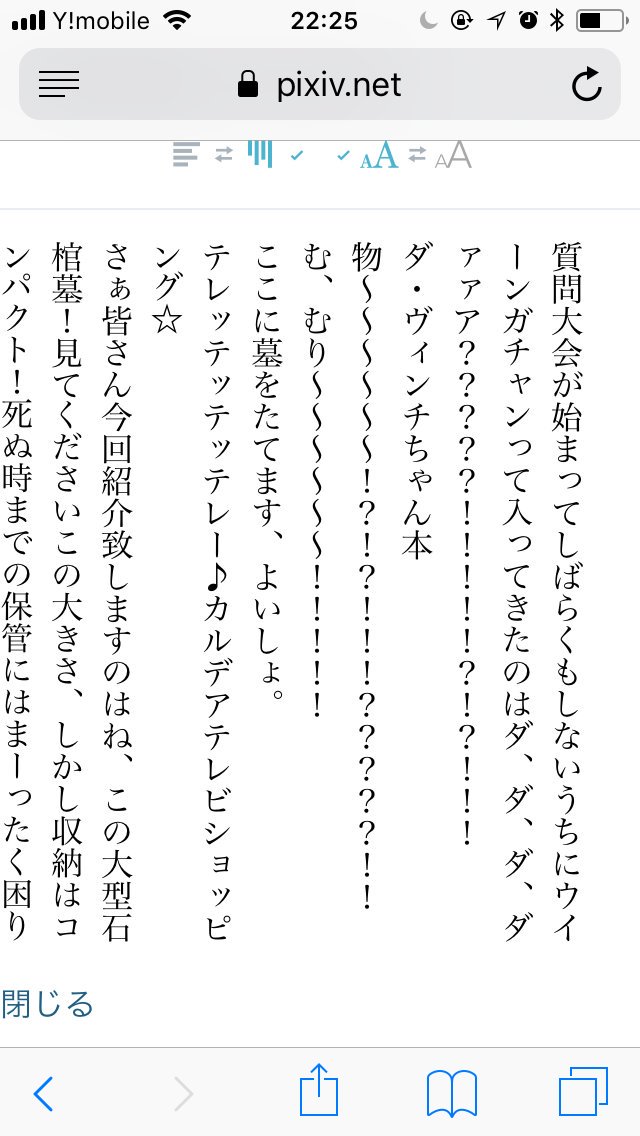 Y!mobile 22:25
pixiv.net
AA AA
質問大会が始まってしばらくもしないうちにウイ
ーンガチャンって入ってきたのはダ、ダ、ダ、ダ
ァァア？？？？？！！！！！？！？！！！
ダ・ヴィンチちゃん本
物〜〜〜〜〜〜！？！？！！！？？？？？！！
む、むり〜〜〜〜〜〜！！！！！
ここに墓をたてます、よいしょ。
テレッテッテッテレー♪カルデアテレビショッピ
ング☆
さぁ皆さん今回紹介致しますのはね、この大型石
棺墓！見てくださいこの大きさ、しかし収納はコ
ンパクト！死ぬ時までの保管にはまーったく困り
閉じる